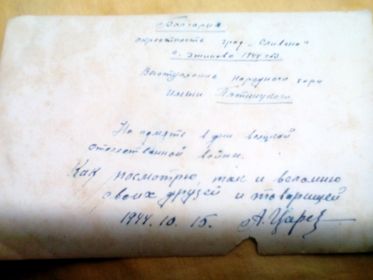 Болгария
окрестность град „Сливено"
с. Джиново 1944 год
Выступление народного хора
имени Пятницкого
На память в дни великой
отечественной войны.
Как посмотрю, так и вспомню
своих друзей и товарищей
1944. 10. 15. А. Царев